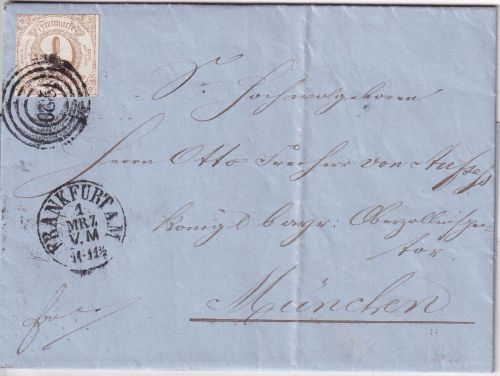 Freimarke
1
220
Sr Hochwolgeboren
Herrn Otto Freiherr von Aufsess
Königl bayr: Oberzollinspe-
tor.
München
FRANKFURT A. M.
1
MRZ
V. M
11-11½